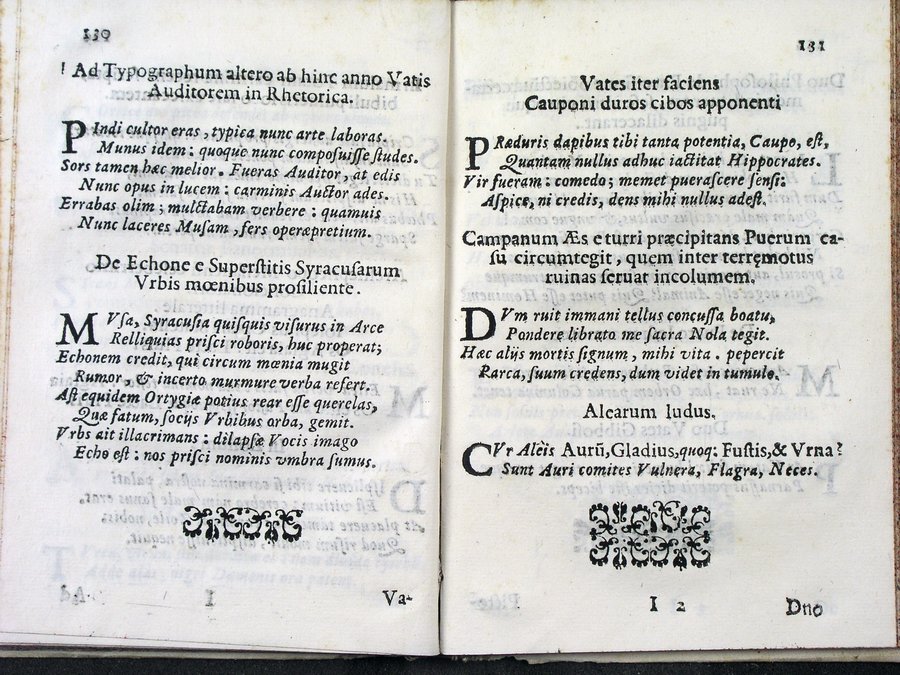 130
Ad Typographum altero ab hinc anno Vatis
Auditorem in Rhetorica.
PIndi cultor eras, typica nunc arte laboras.
Munus idem: quoque nunc composuisse studes.
Sors tamen hæc melior. Fueras Auditor, at edis
Nunc opus in lucem: carminis Auctor ades.
Errabas olim; mulctabam verbere: quamuis
Nunc laceres Musam, fers operæpretium.
De Echone e Superstitis Syracusarum
Vrbis mœnibus prosiliente.
MVsa, Syracusia quisquis visurus in Arce
Relliquias prisci roboris, huc properat;
Echonem credit, qui circum mœnia mugit
Rumor, & incerto murmure verba refert.
Ast equidem Ortygiæ potius rear esse querelas,
Quæ fatum, socijs Vrbibus orba, gemit.
Vrbs ait illacrimans: dilapsæ Vocis imago
Echo est: nos prisci nominis vmbra sumus.
I
Va-
131
Vates iter faciens
Cauponi duros cibos apponenti
PRæduris dapibus tibi tanta potentia, Caupo, est,
Quantam nullus adhuc iactitat Hippocrates.
Vir fueram: comedo; memet puerascere sensi:
Aspice, ni credis, dens mihi nullus adest.
Campanum Æs e turri præcipitans Puerum ca-
su circumtegit, quem inter terręmotus
ruinas seruat incolumem.
DVm ruit immani tellus concussa boatu,
Pondere librato me sacra Nola tegit.
Hæc alijs mortis signum, mihi vita. pepercit
Parca, suum credens, dum videt in tumulo.
Alearum ludus.
CVr Aleis Aurũ, Gladius, quoq; Fustis, & Vrna?
Sunt Auri comites Vulnera, Flagra, Neces.
I 2
Duo